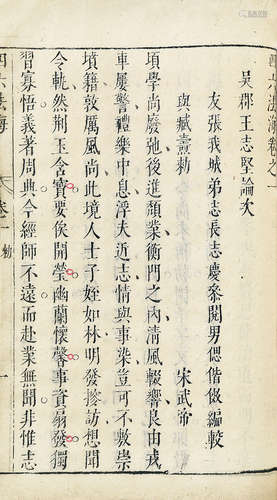 四六法海卷之一
吳郡王志堅論次
友張我城弟志長志慶參閱男偲偕做編較
與臧燾勅　宋武帝
頃學尚廢弛後進頹業衡門之內清風輟響良由戎
車屢警禮樂中息浮夫近志情與事染豈可不敷崇
墳籍敦厲風尚此境人士子姪如林明發搜訪想聞
令軌然荊玉含寶要俟開瑩幽蘭懷馨事資扇發獨
習寡悟義著周典今經師不遠而赴業無聞非惟志
四六法海　卷一　勅　一